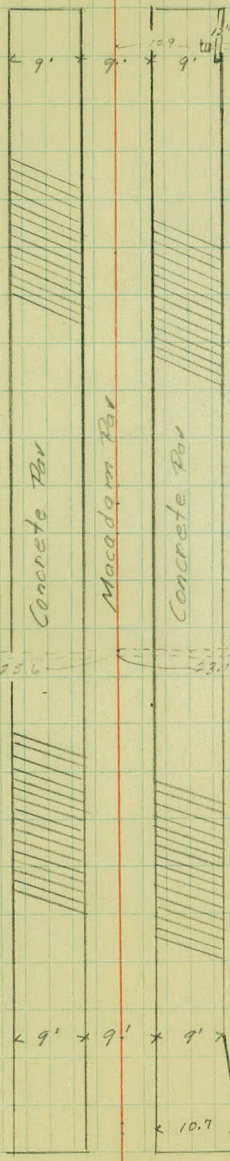 10.9
9' 9' 9'
Concrete Pav
Macadam Pav
Concrete Pav
23.6
9' 9' 9'
10.7